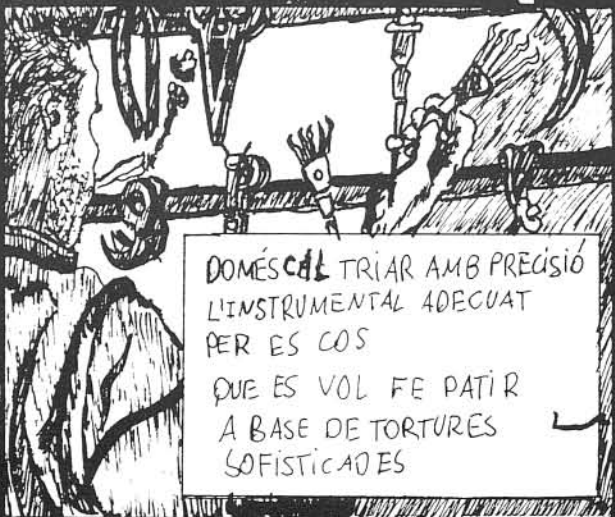 DOMÉS CAL TRIAR AMB PRECISIÓ
L'INSTRUMENTAL ADECUAT
PER ES COS
QUE ES VOL FE PATIR
A BASE DE TORTURES
SOFISTICADES